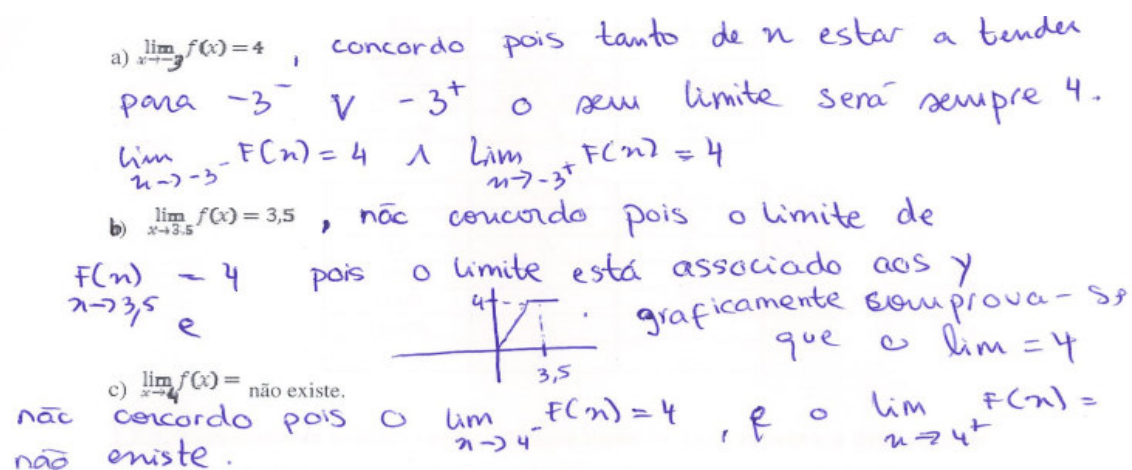 a) lim x→-3 f(x) = 4 , concordo pois tanto de x estar a tender
para -3⁻ V -3⁺ o seu limite será sempre 4.
lim x→-3⁻ F(x) = 4 ∧ Lim x→-3⁺ F(x) = 4
b) lim x→3.5 f(x) = 3,5 , não concordo pois o limite de
F(x) x→3,5 = 4 pois o limite está associado aos y
e 4 3,5 graficamente comprova-se
que o lim = 4
c) lim x→4 f(x) = não existe.
não concordo pois o lim x→4⁻ F(x) = 4 , e o lim x→4⁺ F(x) =
não existe.